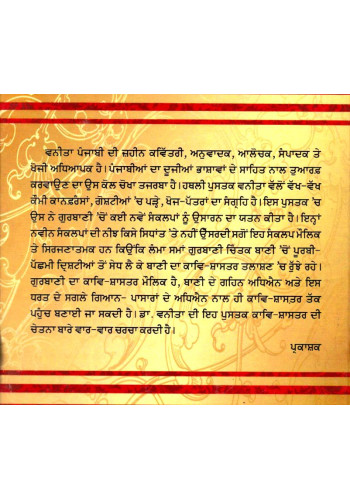 ਵਨੀਤਾ ਪੰਜਾਬੀ ਦੀ ਜ਼ਹੀਨ ਕਵਿੱਤਰੀ, ਅਨੁਵਾਦਕ, ਆਲੋਚਕ, ਸੰਪਾਦਕ ਤੇ
ਖੋਜੀ ਅਧਿਆਪਕ ਹੈ। ਪੰਜਾਬੀਆਂ ਦਾ ਦੂਜੀਆਂ ਭਾਸ਼ਾਵਾਂ ਦੇ ਸਾਹਿਤ ਨਾਲ ਤੁਆਰਫ਼
ਕਰਵਾਉਣ ਦਾ ਉਸ ਕੋਲ ਚੋਖਾ ਤਜਰਬਾ ਹੈ। ਹਥਲੀ ਪੁਸਤਕ ਵਨੀਤਾ ਵੱਲੋਂ ਵੱਖ-ਵੱਖ
ਕੌਮੀ ਕਾਨਫ਼ਰੰਸਾਂ, ਗੋਸ਼ਟੀਆਂ 'ਚ ਪੜ੍ਹੇ, ਖੋਜ-ਪੱਤਰਾਂ ਦਾ ਸੰਗ੍ਰਹਿ ਹੈ। ਇਸ ਪੁਸਤਕ 'ਚ
ਉਸ ਨੇ ਗੁਰਬਾਣੀ 'ਚੋਂ ਕਈ ਨਵੇਂ ਸੰਕਲਪਾਂ ਨੂੰ ਉਸਾਰਨ ਦਾ ਯਤਨ ਕੀਤਾ ਹੈ। ਇਨ੍ਹਾਂ
ਨਵੀਨ ਸੰਕਲਪਾਂ ਦੀ ਨੀਂਝ ਕਿਸੇ ਸਿਧਾਂਤ 'ਤੇ ਨਹੀਂ ਉੱਸਰਦੀ ਸਗੋਂ ਇਹ ਸੰਕਲਪ ਮੌਲਿਕ
ਤੇ ਸਿਰਜਣਾਤਮਕ ਹਨ ਕਿਉਂਕਿ ਲੰਮਾ ਸਮਾਂ ਗੁਰਬਾਣੀ ਚਿੰਤਕ ਬਾਣੀ 'ਚੋਂ ਪੂਰਬੀ-
ਪੱਛਮੀ ਦ੍ਰਿਸ਼ਟੀਆਂ ਤੋਂ ਸੇਧ ਲੈ ਕੇ ਬਾਣੀ ਦਾ ਕਾਵਿ-ਸ਼ਾਸਤਰ ਤਲਾਸ਼ਣ 'ਚ ਰੁੱਝੇ ਰਹੇ।
ਗੁਰਬਾਣੀ ਦਾ ਕਾਵਿ-ਸ਼ਾਸਤਰ ਮੌਲਿਕ ਹੈ, ਬਾਣੀ ਦੇ ਗਹਿਨ ਅਧਿਐਨ ਅਤੇ ਇਸ
ਧਰਤ ਦੇ ਸਗਲੇ ਗਿਆਨ- ਪਾਸਾਰਾਂ ਦੇ ਅਧਿਐਨ ਨਾਲ ਹੀ ਕਾਵਿ-ਸ਼ਾਸਤਰ ਤੱਕ
ਪਹੁੰਚ ਬਣਾਈ ਜਾ ਸਕਦੀ ਹੈ। ਡਾ. ਵਨੀਤਾ ਦੀ ਇਹ ਪੁਸਤਕ ਕਾਵਿ-ਸ਼ਾਸਤਰ ਦੀ
ਚੇਤਨਾ ਬਾਰੇ ਵਾਰ-ਵਾਰ ਚਰਚਾ ਕਰਦੀ ਹੈ।
ਪ੍ਰਕਾਸ਼ਕ